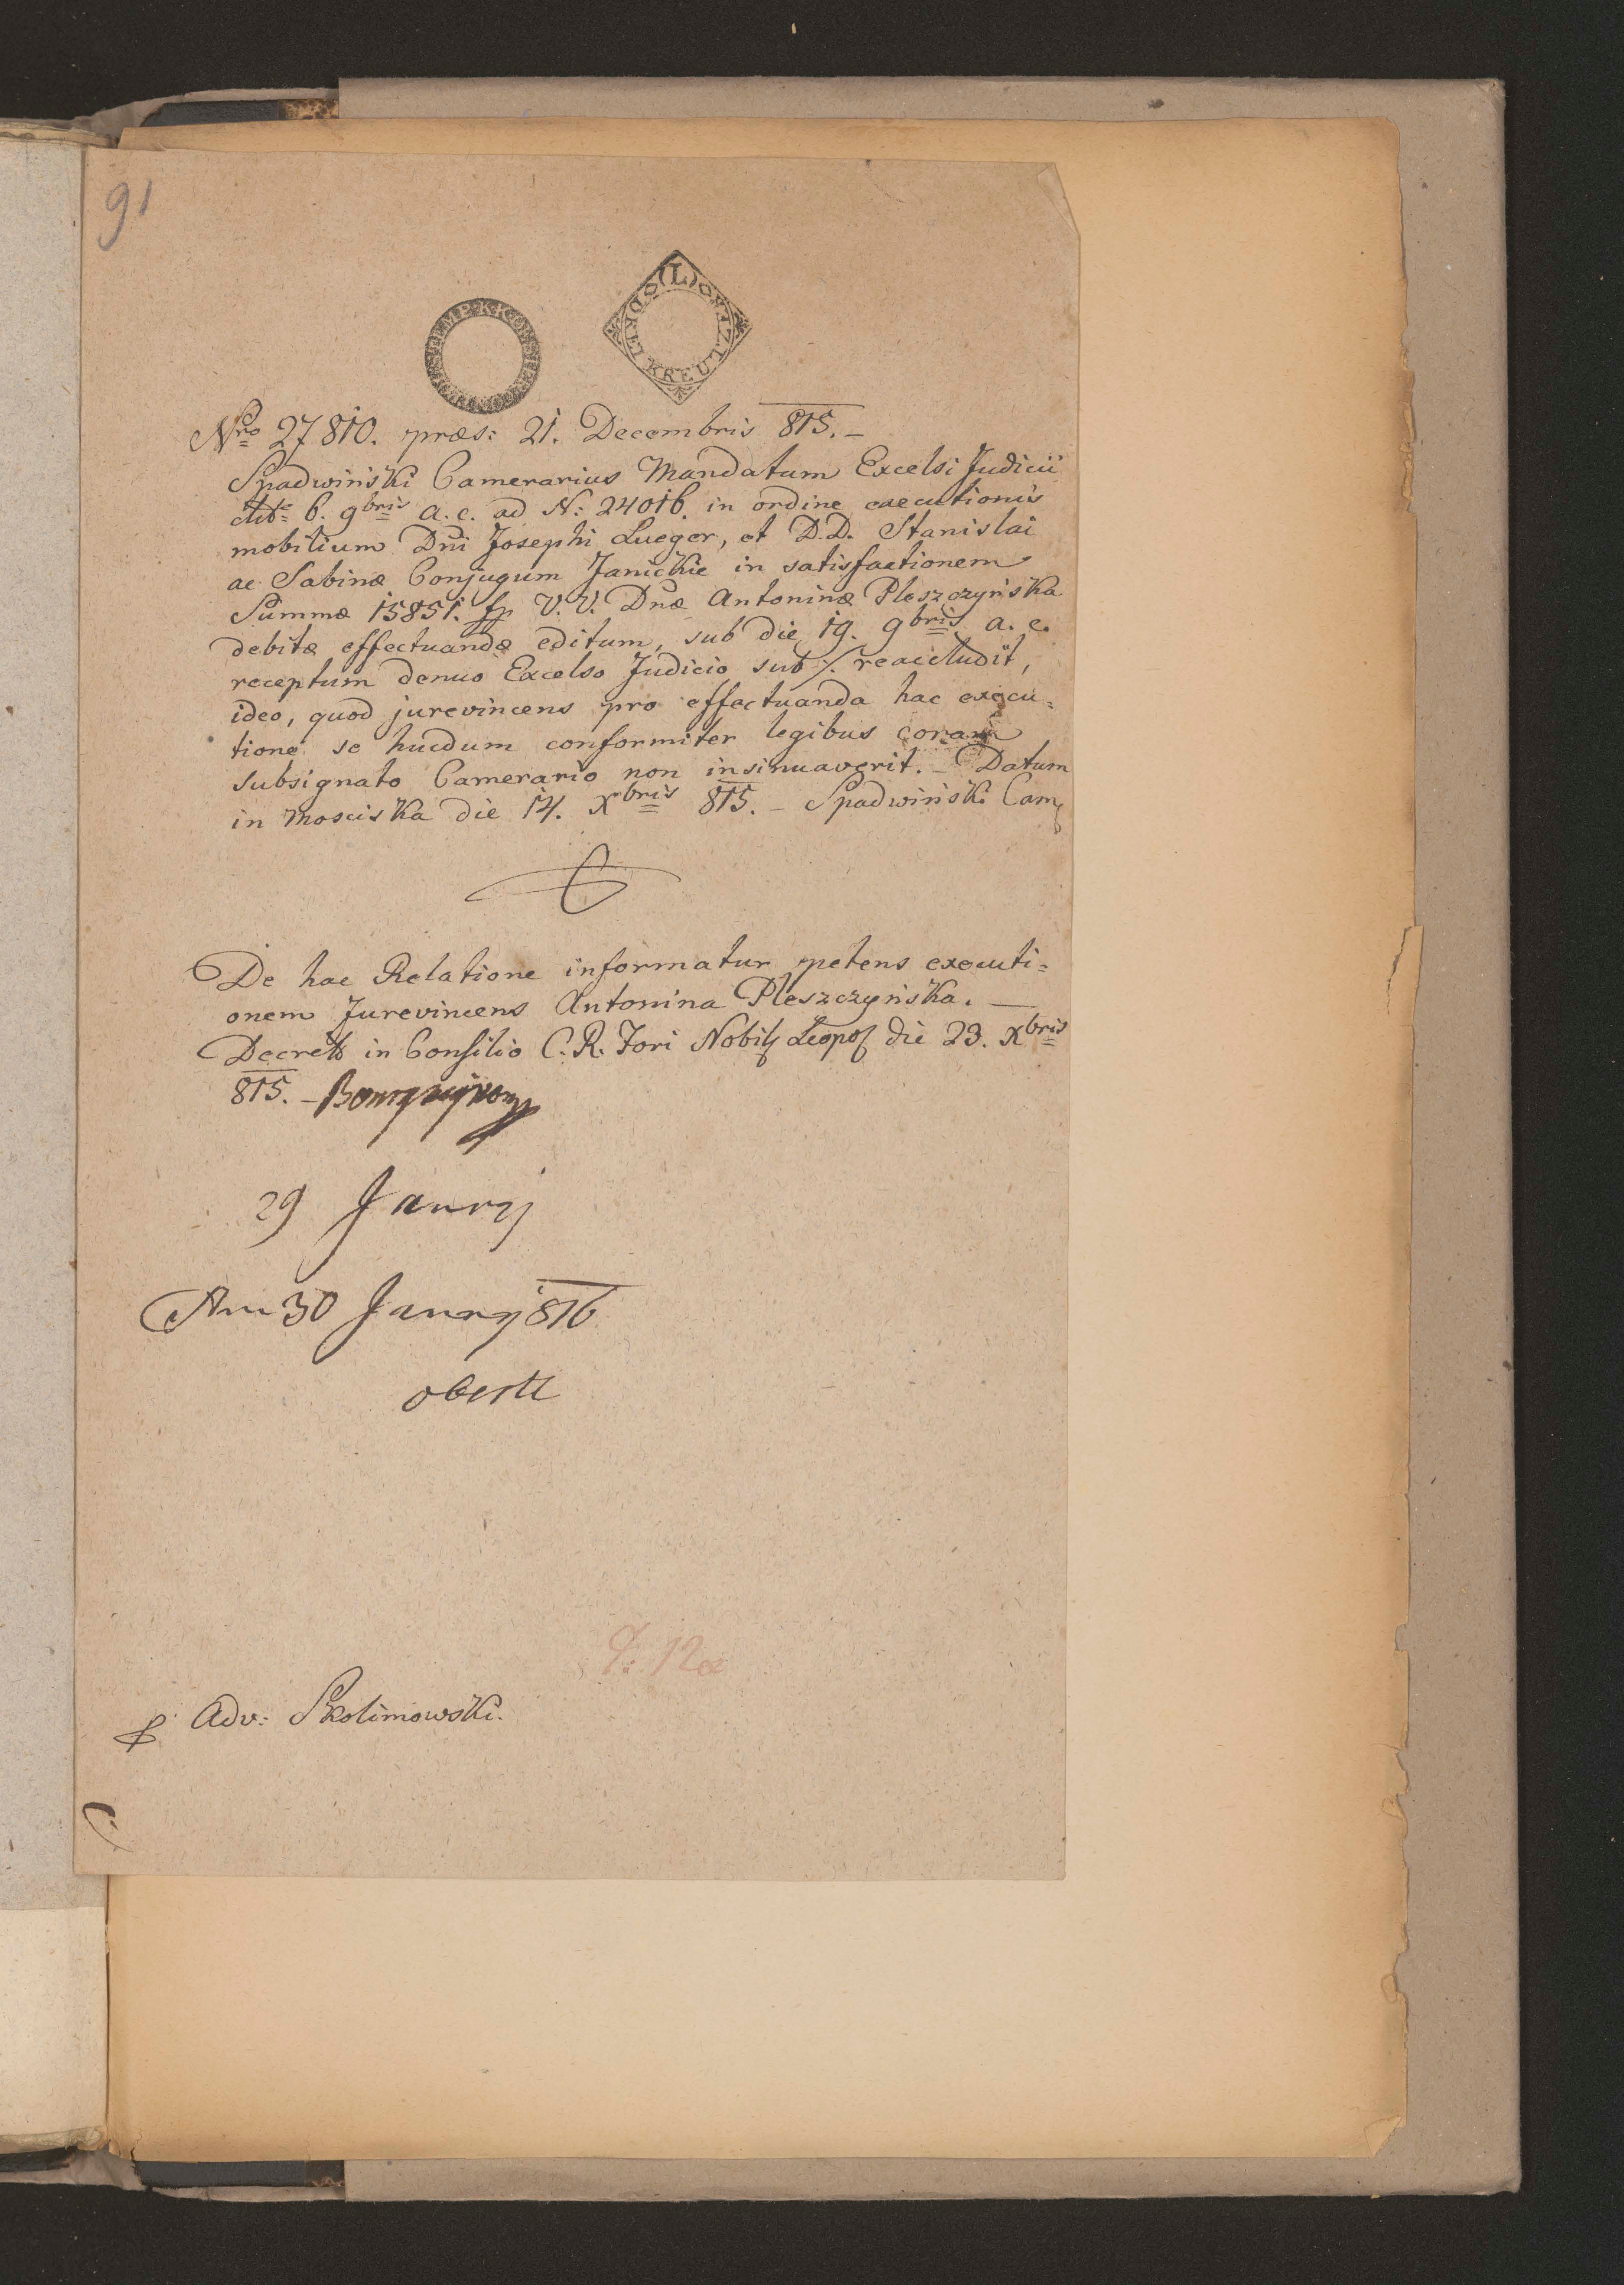 91
(L)
DREY KREUTZER
Nro 27810. præs: 21. Decembris 815. –
Spadwiński Camerarius Mandatum Excelsi Judicii
dtto 6. 9bris a. c. ad N: 24016. in ordine executionis
mobilium Dni Josephi Lueger, et D.D. Stanislai
ac Sabinæ Conjugum Janickie in satisfactionem
Summæ 15851. fp V. V. Dnæ Antoninæ Pleszczyńska
debitæ effectuandæ editum, sub die 19. 9bris a. c.
receptum denuo Excelso Judicio sub ./. reaccludit,
ideo, quod jurevincens pro effectuanda hac execu=
tione se hucdum conformiter legibus coram
subsignato Camerario non insinuaverit. – Datum
in Mosciska die 14. Xbris 815. – Spadwiński Cam
De hac Relatione informatur petens executi=
onem Jurevincens Antonina Pleszczyńska. —
Decret in Consilio C. R. Fori Nobil Leopol die 23. Xbris
815. –
29 Janrj
Am 30 Janrj 816
Adv: Skolimowski.